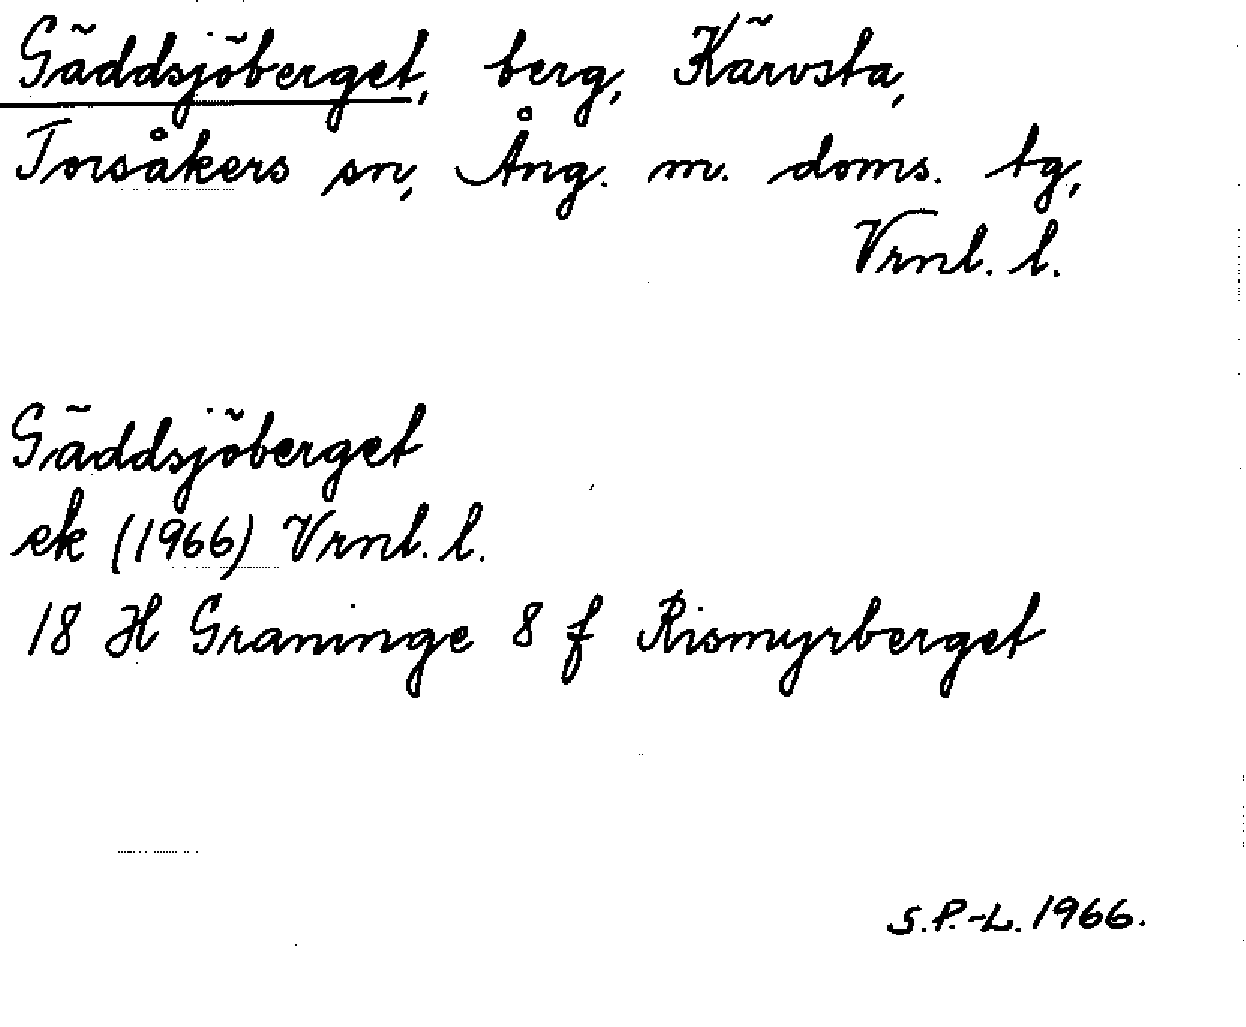 Gäddsjöberget, berg, Kärvsta,
Torsåkers sn, Ång. m. doms. tg,
Vrnl. l.
Gäddsjöberget
ek (1966) Vrnl. l.
18 H Graninge 8 f Rismyrberget
S.P.-L. 1966.